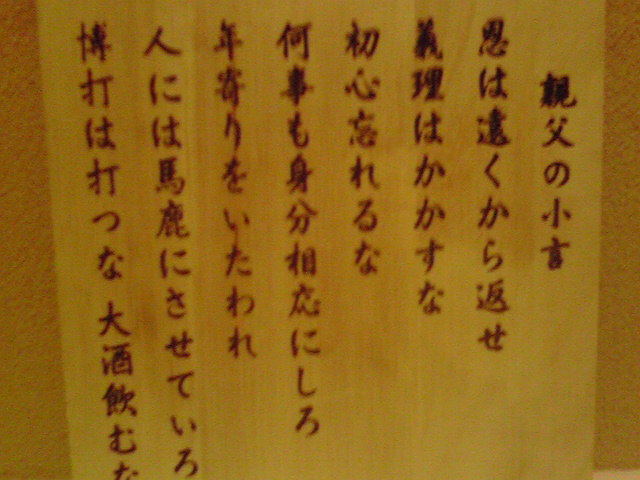 親父の小言
恩は遠くから返せ
義理はかかすな
初心忘れるな
何事も身分相応にしろ
年寄りをいたわれ
人には馬鹿にさせていろ
博打は打つな 大酒飲むな